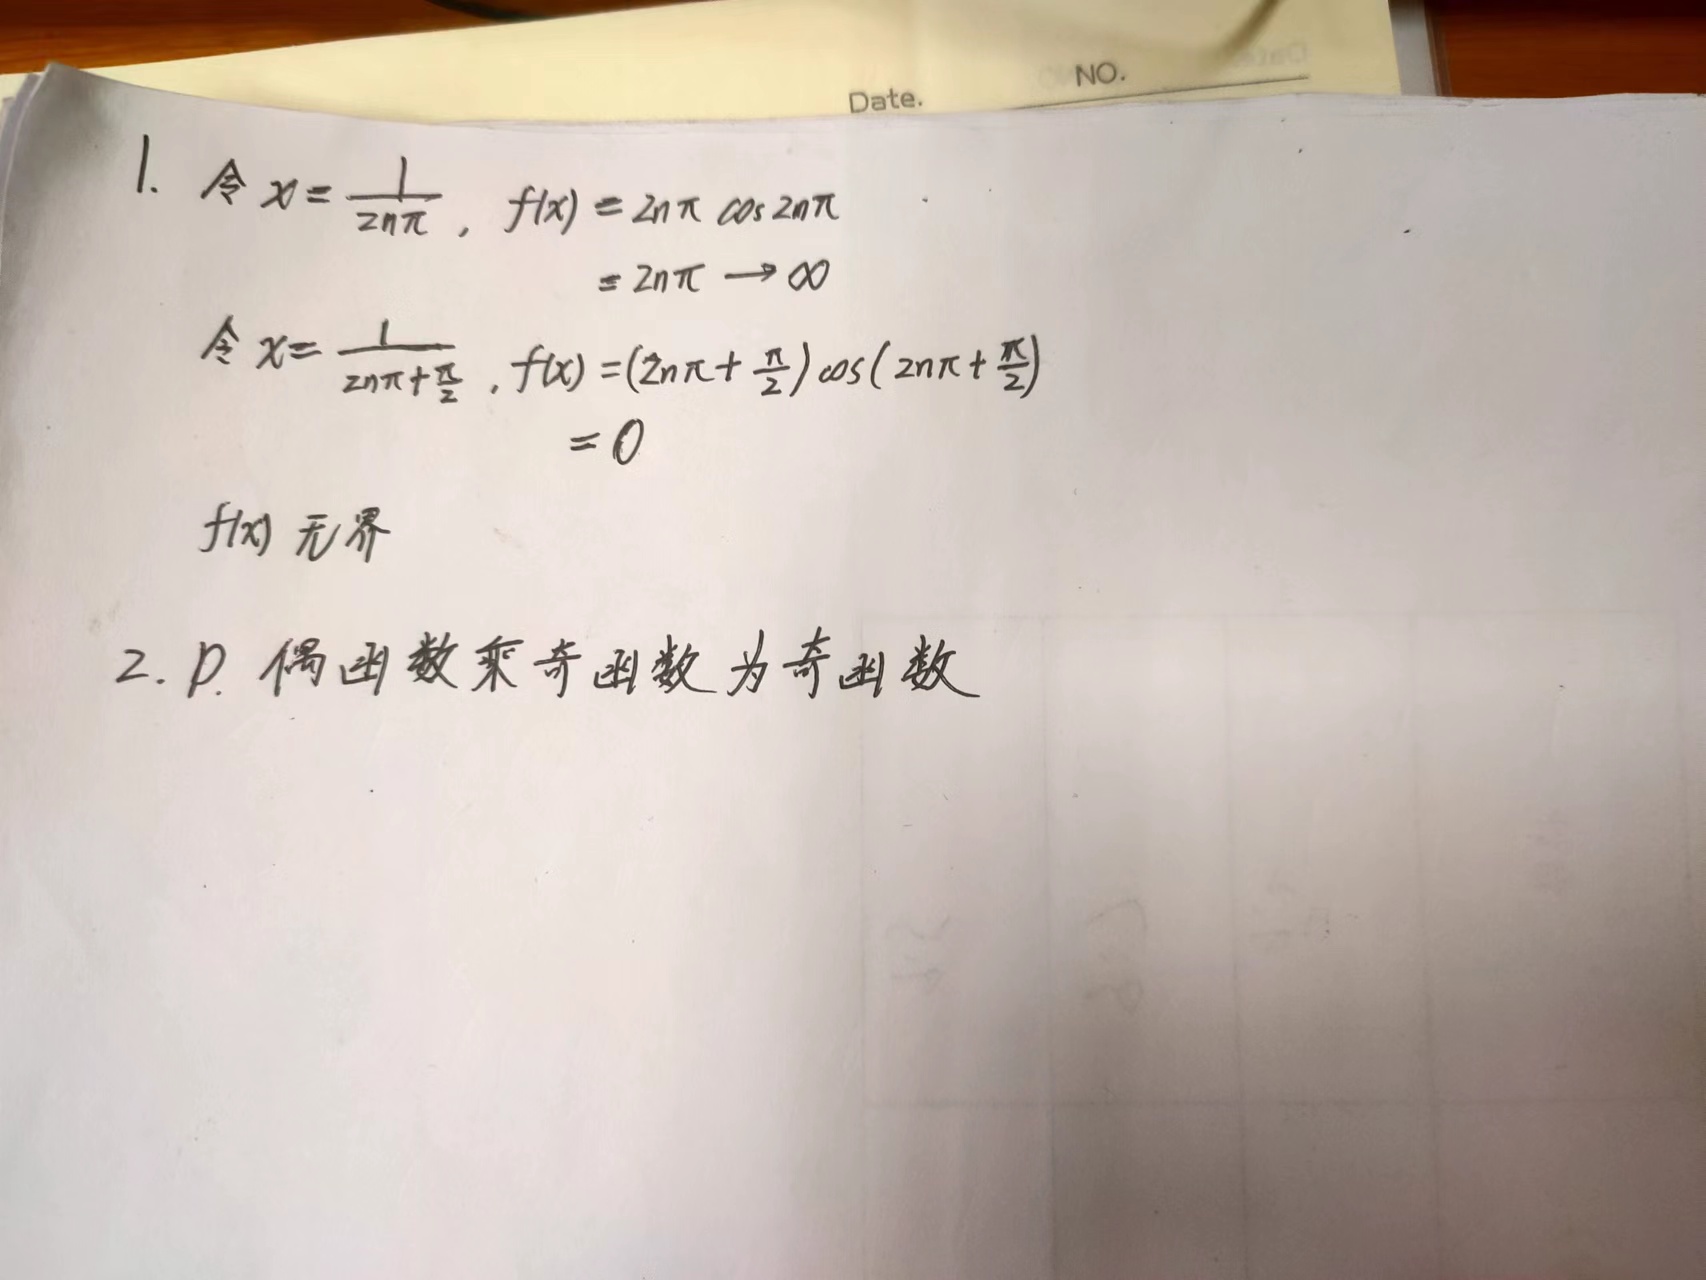 Date.
NO.
1. 令 x = 1/(2nπ), f(x) = 2nπ cos 2nπ
= 2nπ → ∞
令 x = 1/(2nπ + π/2), f(x) = (2nπ + π/2) cos(2nπ + π/2)
= 0
f(x) 无界
2. D. 偶函数乘奇函数为奇函数